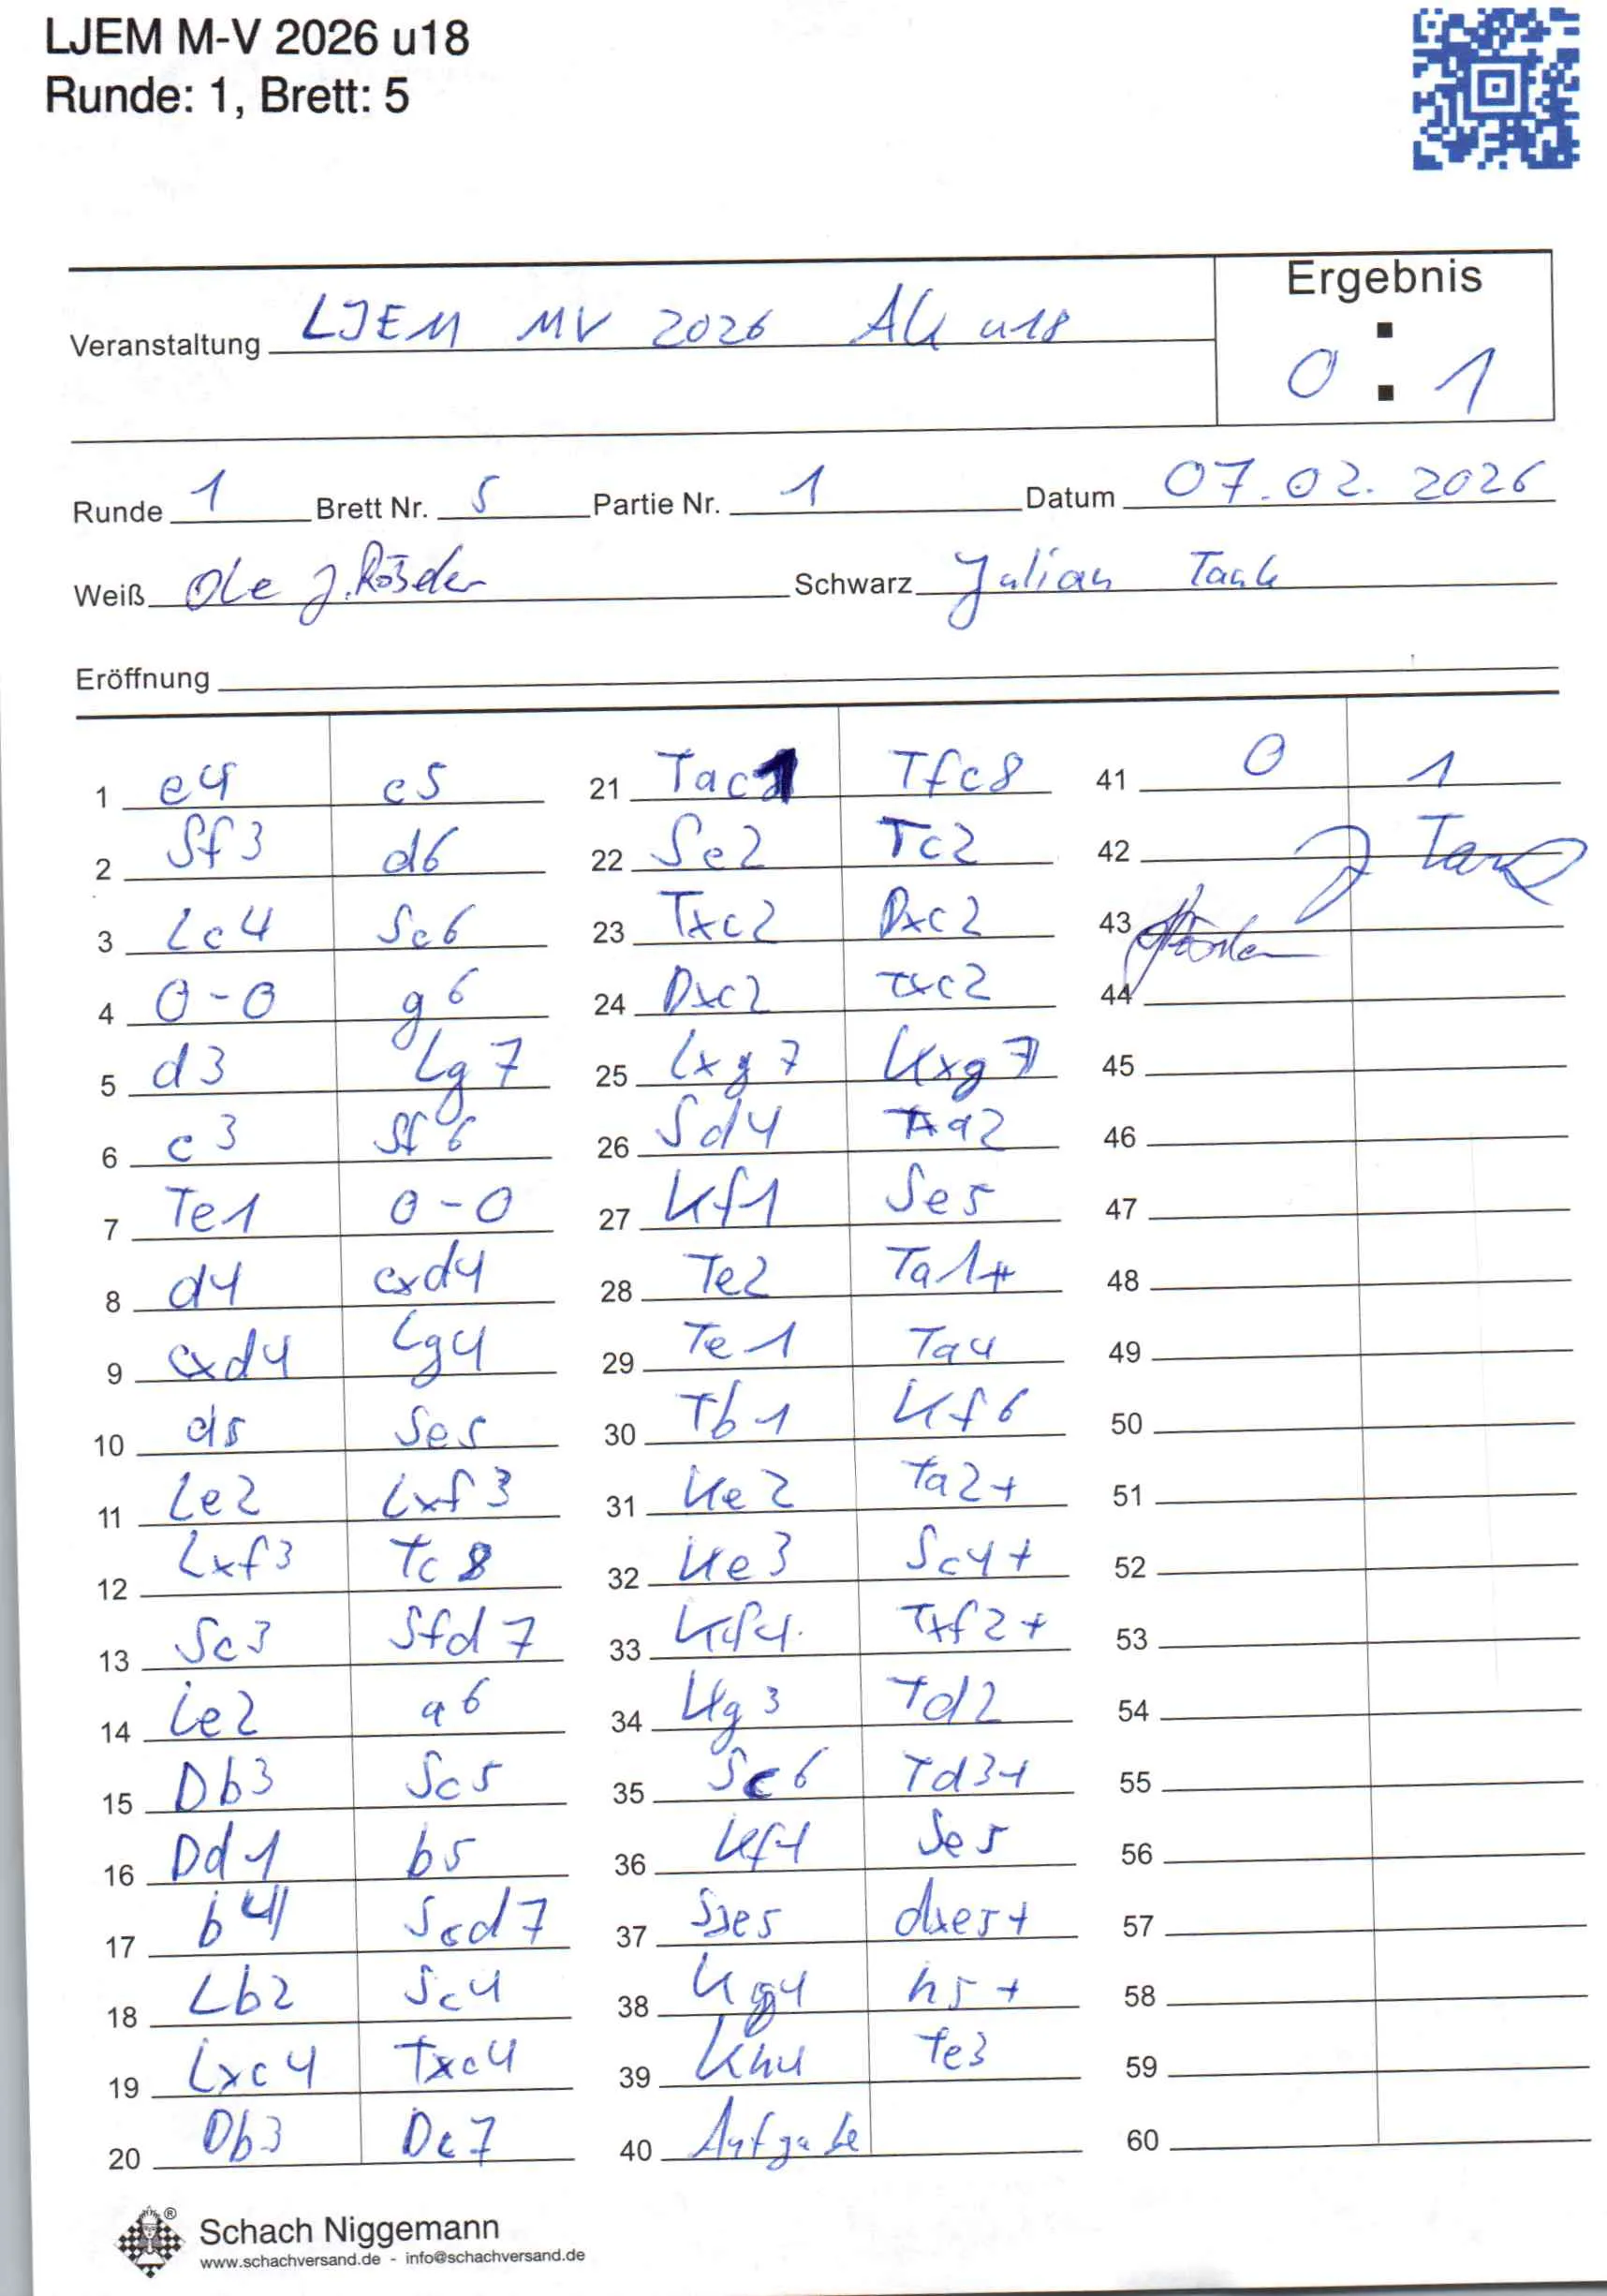 LJEM M-V 2026 u18
Runde: 1, Brett: 5
Ergebnis
Veranstaltung LJEM MV 2026 AK u18
0 : 1
Runde 1 Brett Nr. 5 Partie Nr. 1 Datum 07.02.2026
Weiß Ole J. Schwarz Julian Tank
Eröffnung
1 e4 c5
2 Sf3 d6
3 Lc4 Sc6
4 0-0 g6
5 d3 Lg7
6 c3 Sf6
7 Te1 0-0
8 d4 cxd4
9 cxd4 Lg4
10 d5 Se5
11 Le2 Lxf3
12 Lxf3 Tc8
13 Sc3 Sfd7
14 Le2 a6
15 Db3 Sc5
16 Dd1 b5
17 b4 Scd7
18 Lb2 Sc4
19 Lxc4 Txc4
20 Db3 Dc7
21 Tac1 Tfc8
22 Se2 Tc2
23 Txc2 Dxc2
24 Dxc2 Txc2
25 Lxg7 Kxg7
26 Sd4 Ta2
27 Kf1 Se5
28 Te2 Ta1+
29 Te1 Ta4
30 Tb1 Kf6
31 Ke2 Ta2+
32 Ke3 Sc4+
33 Kf4 Txf2+
34 Kg3 Td2
35 Sc6 Td3+
36 Kf4 Se5
37 Sxe5 dxe5+
38 Kg4 h5+
39 Kh4 Te3
40 Aufgabe
41 0 1
42 J Tank
43
44
45
46
47
48
49
50
51
52
53
54
55
56
57
58
59
60
® Schach Niggemann
www.schachversand.de - info@schachversand.de